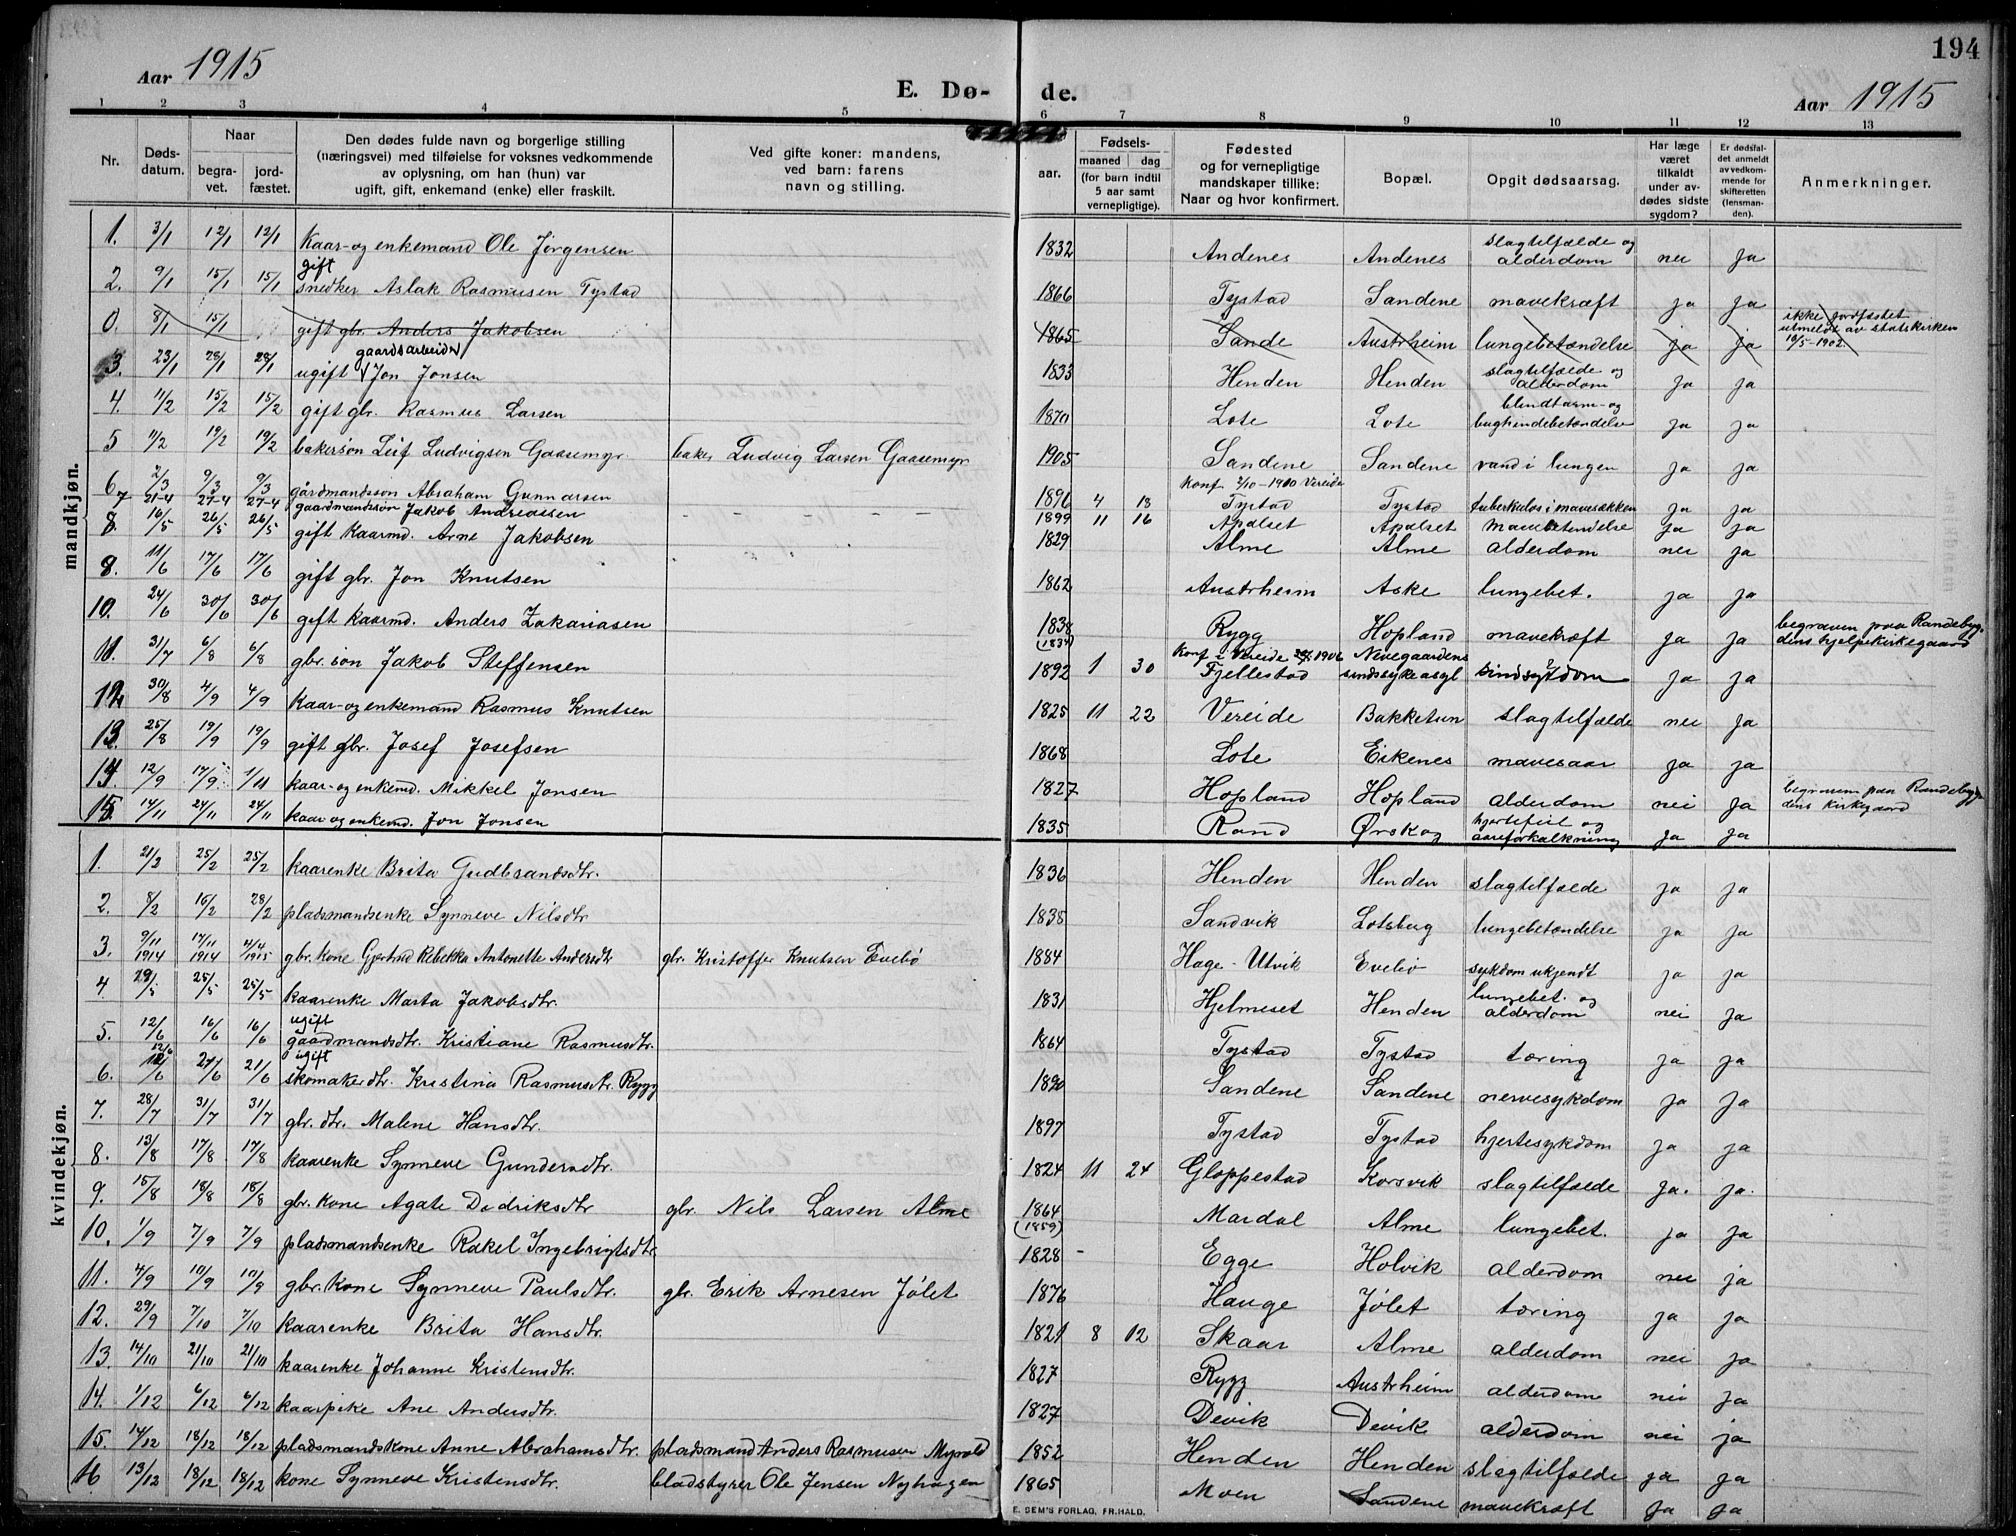 194
Aar 1915
E. Dø-
de.
Aar 1915
1 2 3 4 5 6 7 8 9 10 11 12 13
Nr.
Døds-
datum.
Naar
begra-
vet.
jord-
fæstet.
Den dødes fulde navn og borgerlige stilling
(næringsvei) med tilføielse for voksnes vedkommende
av oplysning, om han (hun) var
ugift, gift, enkemand (enke) eller fraskilt.
Ved gifte koner: mandens,
ved barn: farens
navn og stilling.
aar.
Fødsels-
maaned dag
(for barn indtil
5 aar samt
vernepligtige).
Fødested
og for vernepligtige
mandskaper tillike:
Naar og hvor konfirmert.
Bopæl.
Opgit dødsaarsag.
Har læge
været
tilkaldt
under av-
dødes sidste
sygdom?
Er dødsfal-
det anmeldt
av vedkom-
mende for
skifteretten
(lensman-
den).
Anmerkninger.
mandkjøn.
1. 3/1 12/1 12/1 Kaar- og enkemand Ole Jørgensen 1832 Andenes Andenes slagtilfælde og alderdom nei Ja
2. 9/1 15/1 15/1 gift snedker Aslak Rasmusen Tystad 1866 Tystad Sandene mavekræft ja Ja
0. 8/1 15/1 gift gbr. Anders Jakobsen 1865 Sande Austrheim lungebetændelse ja ja ikke jordfæstet utmeldt av statskirken 16/5-1902.
3. 23/1 28/1 28/1 ugift gaardsarbeider Jon Jonsen 1833 Henden Henden slagtilfælde og alderdom Ja ja
4. 11/2 15/2 15/2 gift gbr. Rasmus Larsen 1870 Lote Lote blindtarm- og bughindebetændelse ja Ja
5 11/2 19/2 19/2 bakersøn Leif Ludvigsen Gaasemyr baker Ludvig Larsen Gaasemyr 1905 Sandene Sandene vand i lungen Ja Ja
6. 2/3 9/3 9/3 gårdmandssøn Abraham Gunnarsen 1896 4 13 Konf 2/10-1910 Vereide Tystad Tystad tuberkulos i mavesækken Ja Ja
7 21-4 27-4 27-4 gaardmandssøn Jakob Andreassen 1899 11 16 Apalset Apalset mavebetendelse Ja Ja
8. 16/5 26/5 26/5 gift Kaarmd. Arne Jakobsen 1829 Alme Alme alderdom nei ja
8. 11/6 17/6 17/6 gift gbr. Jon Knutsen 1862 Austrheim Aske lungebet. ja Ja
10. 24/6 30/6 30/6 gift kaarmd. Anders Zakariasen 1838 (1834) Rygg Hopland mavekræft Ja Ja begraven paa Randebygdens hjelpekirkegaard
11. 31/7 6/8 6/8 gbr. søn Jakob Steffensen 1892 1 30 Konf i Vereide 1906 Fjellestad Nevegaardens sindssykeasyl sindssykdom Ja Ja
12. 30/8 4/9 4/9 Kaar- og enkemand Rasmus Knutsen 1825 11 22 Vereide Bakketun slagtilfælde nei Ja
13. 25/8 19/9 19/9 gift gbr. Josef Josefsen 1868 Lote Eikenes mavesaar Ja Ja
14. 12/9 17/9 1/11 kaar- og enkemd. Mikkel Jonsen 1827 Hopland Hopland alderdom nei Ja begraven paa Randebygdens kirkegaard
15. 14/11 24/11 24/11 kaar og enkemd. Jon Jonsen 1835 Rand Ørskog hjertefeil og aareforkalkning Ja Ja
kvindekjøn.
1. 21/2 25/2 25/2 kaarenke Brita Gudbrandsdtr. 1836 Henden Henden slagtilfælde Ja Ja
2. 8/2 16/2 28/2 pladsmandsenke Synneve Nilsdtr 1835 Sandvik Lotsberg lungebetændelse Ja Ja
3. 9/11 1914 17/11 1914 4/4 1915 gbr. kone Gjertrud Rebekka Antonette Andersdtr gbr. Kristoffer Knutsen Evebø 1884 Hage - Utvik Evebø sykdom ukjendt Ja Ja
4. 20/5 25/5 25/5 kaarenke Marta Jakobsdtr. 1831 Hjelmeset Henden lungebet. og alderdom nei Ja
5. 12/6 16/6 16/6 ugift gaardmandsdtr. Kristiane Rasmusdtr. 1864 Tystad Tystad tæring Ja Ja
6. 12/6 21/6 21/6 ugift skomakerdtr. Kristina Rasmusdtr. Rygg 1890 Sandene Sandene nervesykdom Ja Ja
7. 28/7 31/7 31/7 gbr. dtr. Malene Hansdtr. 1897 Tystad Tystad hjertesykdom Ja Ja
8. 13/8 17/8 17/8 kaarenke Synneve Gundersdtr. 1824 11 24 Gloppestad Korsvik slagtilfælde Ja. Ja.
9. 15/8 18/8 18/8 gbr. kone Agate Didriksdtr gbr. Nils Larsen Alme 1864 (1859) Mardal Alme lungebet. Ja Ja
10. 1/9 7/9 7/9 pladsmandsenke Rakel Ingebrigtsdtr. 1828 - Egge Holvik alderdom nei ja
11. 4/9 10/9 10/9 gbr. kone Synneve Paulsdtr. gbr. Erik Arnesen Jølet 1876 Hauge Jølet tæring Ja Ja
12. 29/9 7/10 7/10 kaarenke Brita Hansdtr. 1821 8 12 Skaar Alme alderdom nei Ja
13. 14/10 21/10 21/10 kaarenke Johanne Kristensdtr. 1827 Rygg Austrheim alderdom nei Ja
14. 1/12 6/12 6/12 kaarpike Ane Andersdtr. 1827 Devik Devik alderdom nei ja
15. 14/12 18/12 18/12 pladsmandskone Anne Abrahamsdtr. pladsmand Anders Rasmusen Myrold 1852 Henden Henden slagtilfælde ja Ja
16 13/12 18/12 18/12 kone Synneve Kristensdtr. bladstyrer Ole Jensen Nyhagen 1865 Moen Sandene mavekræft Ja Ja
E. SEM'S FORLAG, FR.HALD.